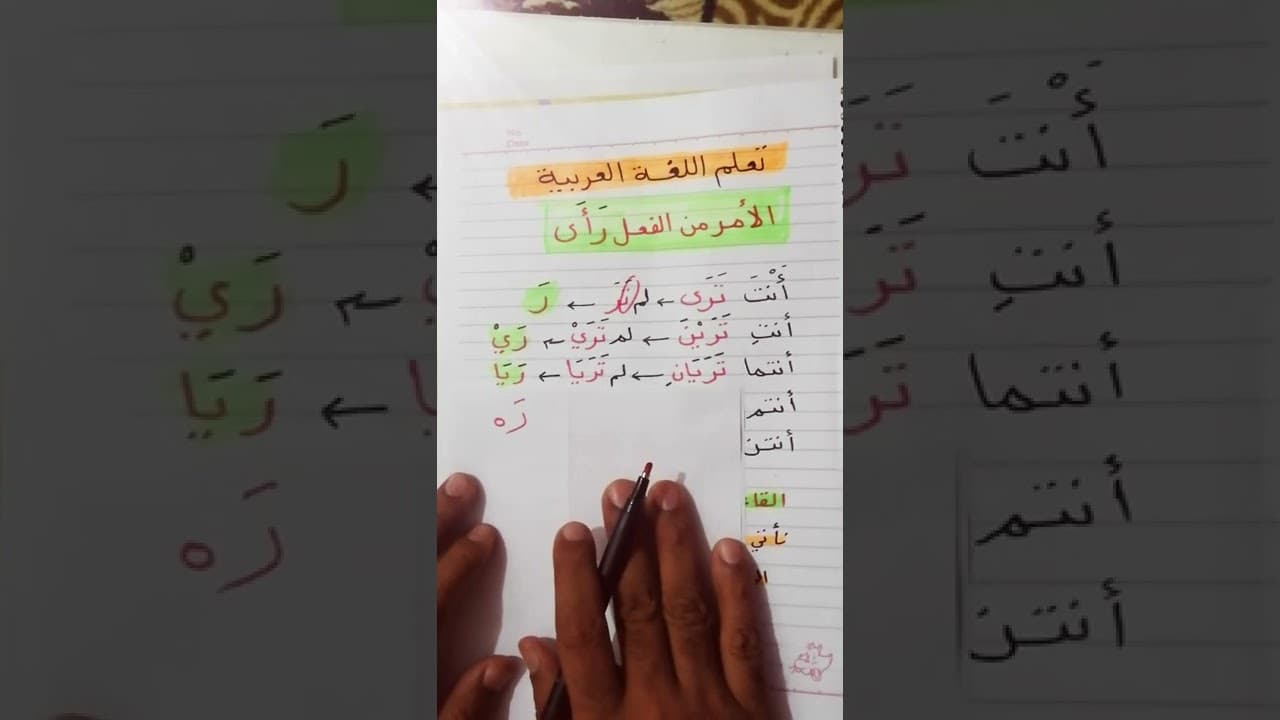 تعلم اللغة العربية
الأمر من الفعل رَأَى
أَنْتَ تَرَى ← لم تَرَ ← رَ
أنتِ تَرَيْنَ ← لم تَرَيْ ← رَيْ
أنتما تَرَيَانِ ← لم تَرَيَا ← رَيَا
أنتم رَه
أنتن